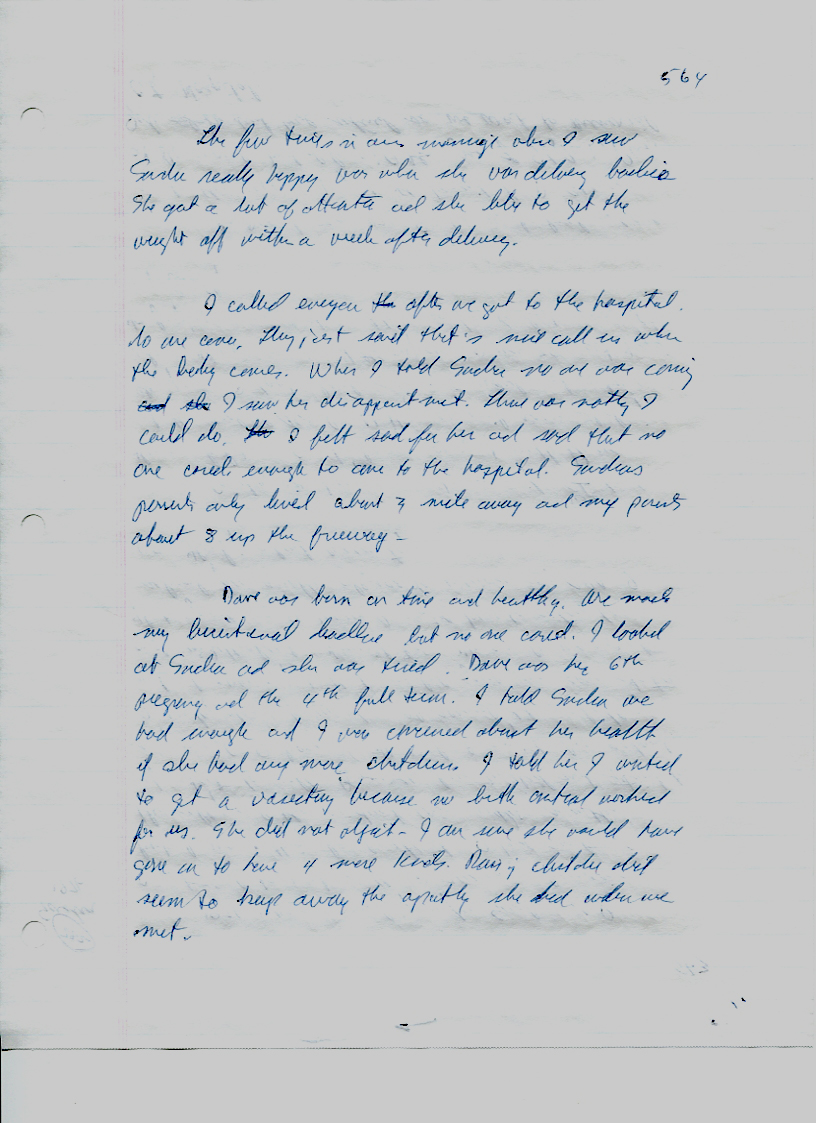 564
The few times in our marriage when I saw
Sandra really happy was when she was delivery babies
She got a lot of attention and she likes to get the
weight off within a week after delivery.
I called everyone the after we got to the hospital.
No one came, they just said that's nice call us when
the Baby comes. When I told Sandra no one was coming
and she I saw her disappointment. There was nothing I
could do. The I felt sad for her and sad that no
one cared enough to come to the hospital. Sandras
parents only lived about 3 mile away and my parents
about 8 up the freeway -
Dave was born on time and healthy. We made
my headline but no one cared. I looked
at Sandra and she was tired. Dave was her 6th
pregnancy and the 4th full term. I told Sandra we
had enough and I was concerned about her health
if she had any more children. I told her I wanted
to get a vasectomy because no birth control worked
for us. She did not object - I am sure she would have
gone on to have 4 more kids. Having children did
seem to keep away the she had when we
met.